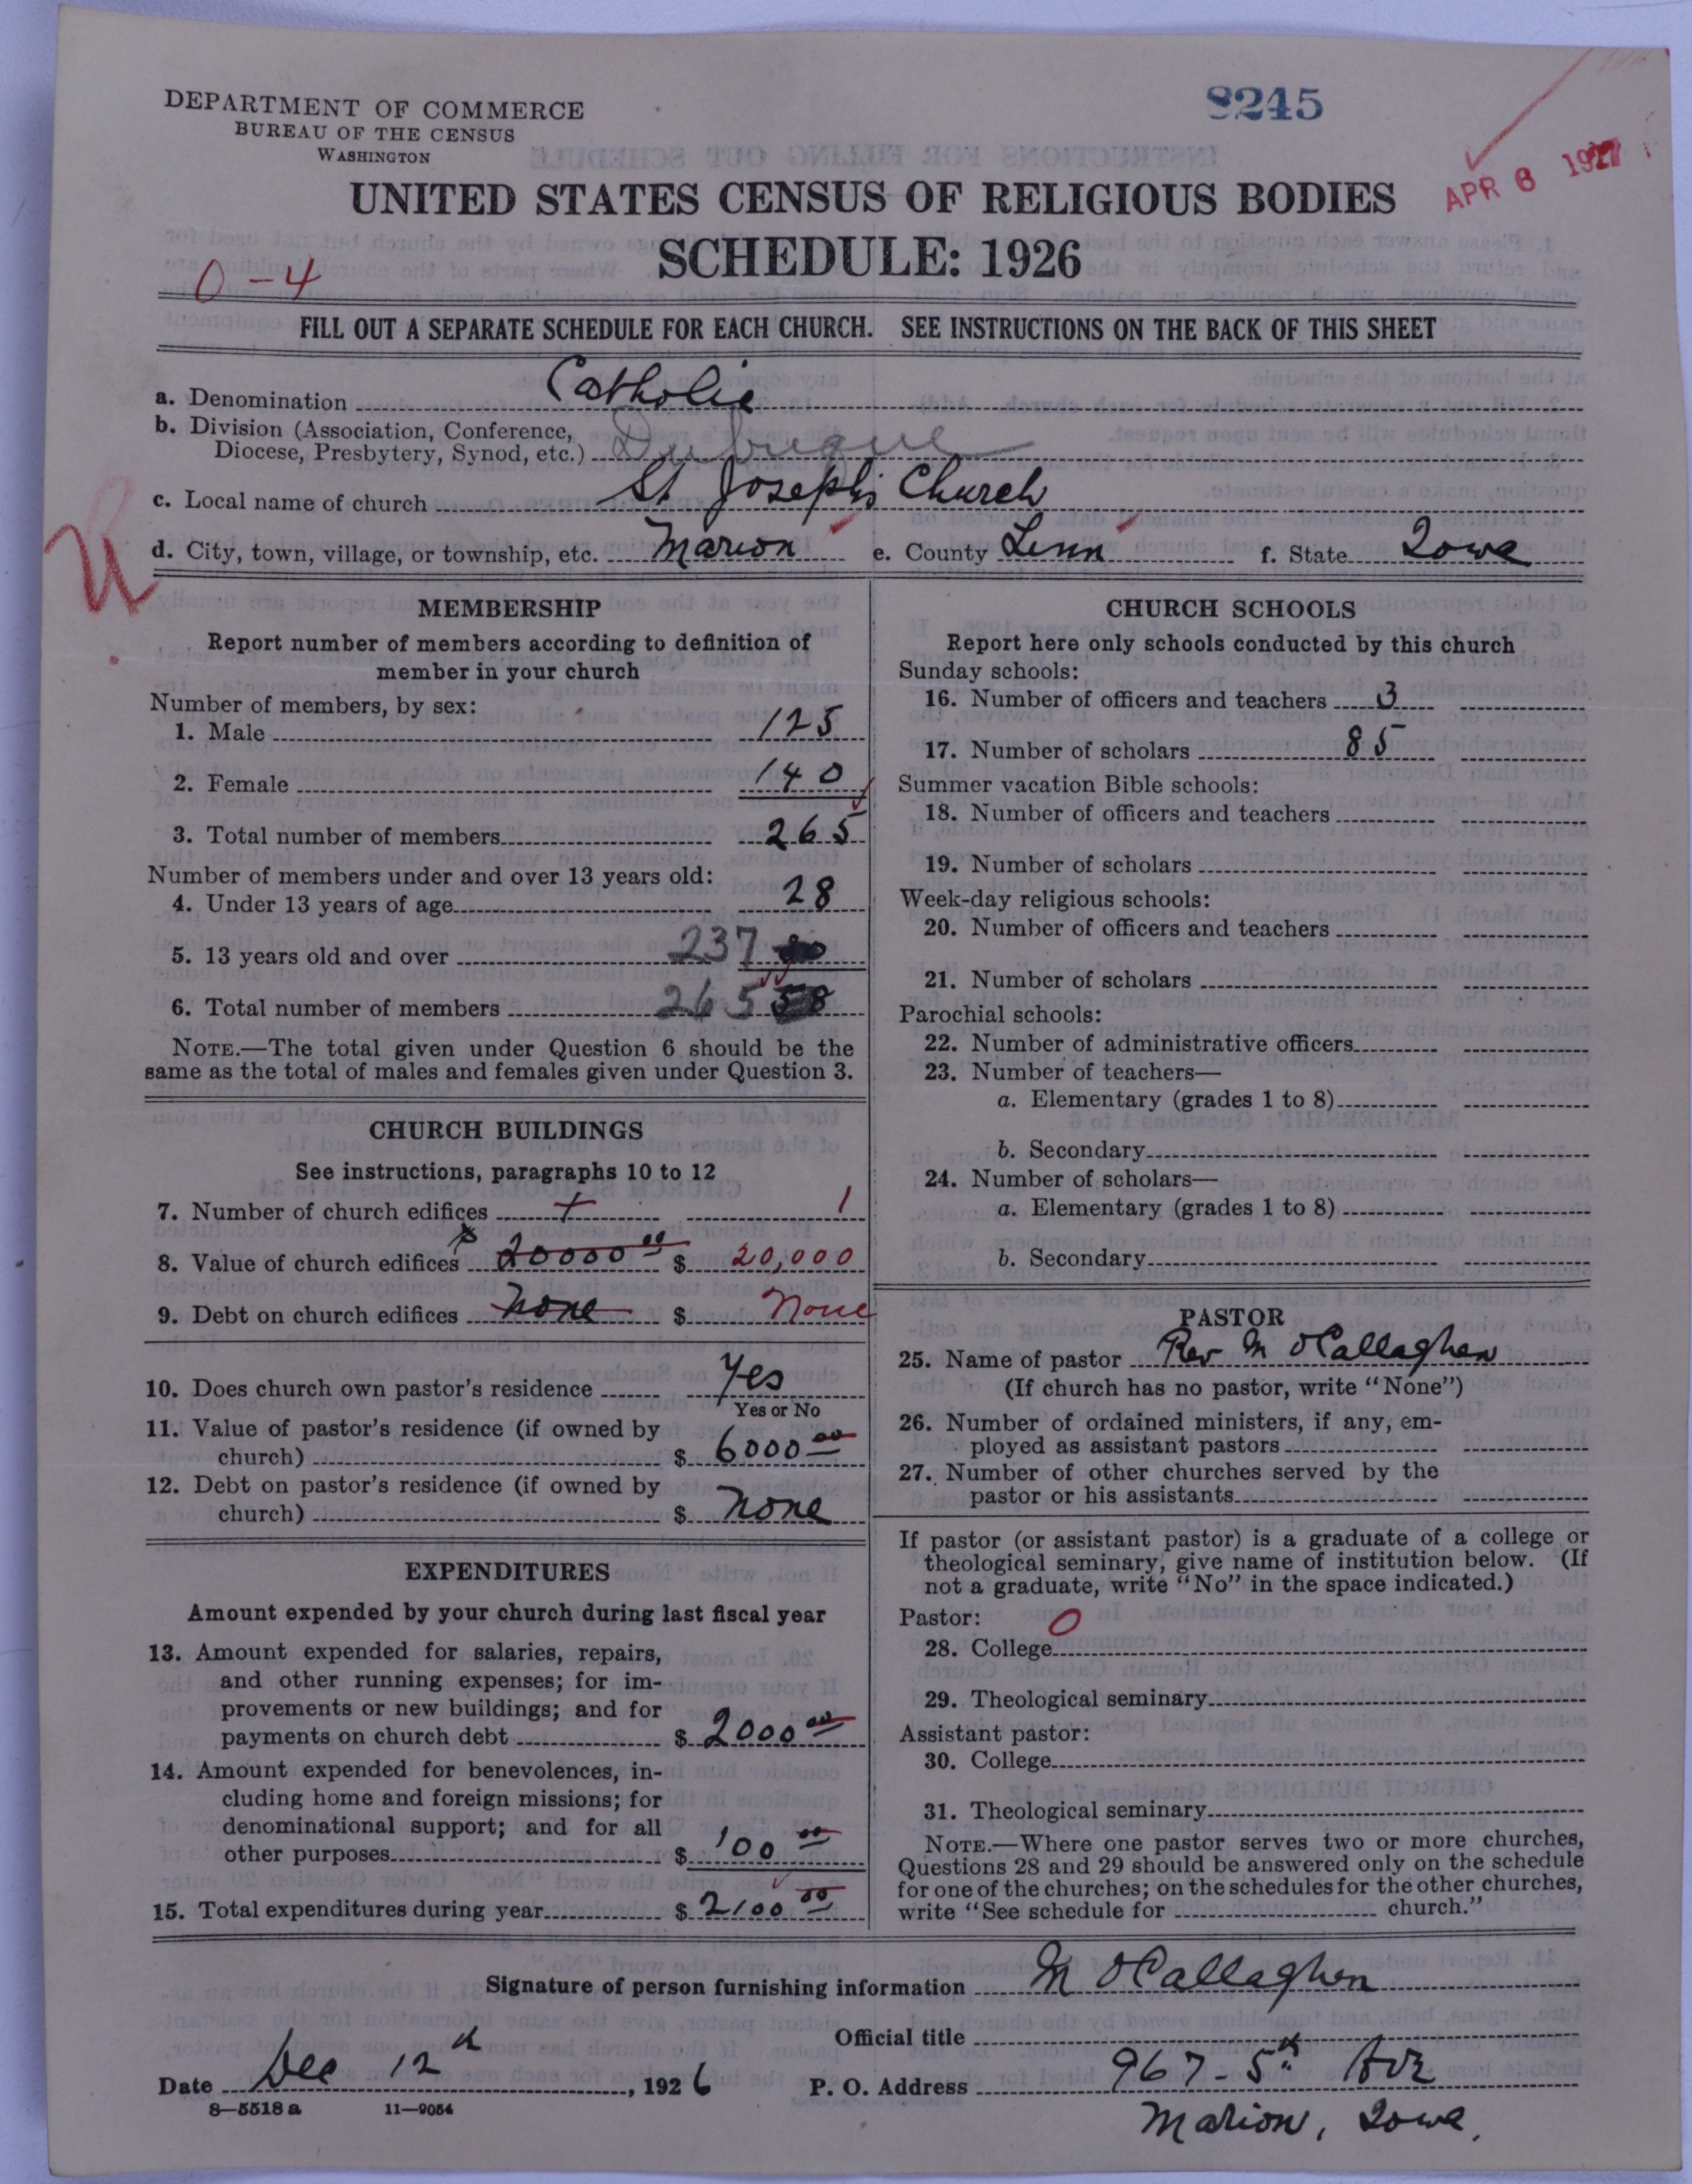 8245
DEPARTMENT OF COMMERCE
BUREAU OF THE CENSUS
WASHINGTON
APR 6 1927
UNITED STATES CENSUS OF RELIGIOUS BODIES
SCHEDULE: 1926
0-4
FILL OUT A SEPARATE SCHEDULE FOR EACH CHURCH. SEE INSTRUCTIONS ON THE BACK OF THIS SHEET
a. Denomination Catholic
b. Division (Association, Conference,
Diocese, Presbytery, Synod, etc.) Dubuque
c. Local name of church St Joseph's Church
d. City, town, village, or township, etc. Marion e. County Linn f. State Iowa
MEMBERSHIP
Report number of members according to definition of
member in your church
Number of members, by sex:
1. Male 125
2. Female 140
3. Total number of members 265
Number of members under and over 13 years old:
4. Under 13 years of age 28
5. 13 years old and over 237
6. Total number of members 265
NOTE.—The total given under Question 6 should be the
same as the total of males and females given under Question 3.
CHURCH BUILDINGS
See instructions, paragraphs 10 to 12
7. Number of church edifices 1
8. Value of church edifices 20000.00 $ 20,000
9. Debt on church edifices none $ None
10. Does church own pastor's residence Yes
Yes or No
11. Value of pastor's residence (if owned by
church) $ 6000.00
12. Debt on pastor's residence (if owned by
church) $ none
EXPENDITURES
Amount expended by your church during last fiscal year
13. Amount expended for salaries, repairs,
and other running expenses; for im-
provements or new buildings; and for
payments on church debt $ 2000.00
14. Amount expended for benevolences, in-
cluding home and foreign missions; for
denominational support; and for all
other purposes $ 100.00
15. Total expenditures during year $ 2100.00
CHURCH SCHOOLS
Report here only schools conducted by this church
Sunday schools:
16. Number of officers and teachers 3
17. Number of scholars 85
Summer vacation Bible schools:
18. Number of officers and teachers
19. Number of scholars
Week-day religious schools:
20. Number of officers and teachers
21. Number of scholars
Parochial schools:
22. Number of administrative officers
23. Number of teachers—
a. Elementary (grades 1 to 8)
b. Secondary
24. Number of scholars—
a. Elementary (grades 1 to 8)
b. Secondary
PASTOR
25. Name of pastor Rev M O'Callaghan
(If church has no pastor, write "None")
26. Number of ordained ministers, if any, em-
ployed as assistant pastors
27. Number of other churches served by the
pastor or his assistants
If pastor (or assistant pastor) is a graduate of a college or
theological seminary, give name of institution below. (If
not a graduate, write "No" in the space indicated.)
Pastor: 0
28. College
29. Theological seminary
Assistant pastor:
30. College
31. Theological seminary
NOTE.—Where one pastor serves two or more churches,
Questions 28 and 29 should be answered only on the schedule
for one of the churches; on the schedules for the other churches,
write "See schedule for church."
Signature of person furnishing information M O'Callaghan
Official title
Date Dec 12th, 1926 P. O. Address 967-5th Ave
8—5518a 11—9054
Marion, Iowa.